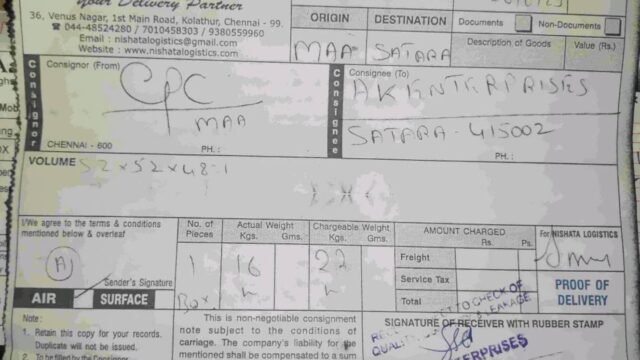 Your Delivery Partner
36, Venus Nagar, 1st Main Road, Kolathur, Chennai - 99.
044-48524280 / 7010458303 / 9380559960
Email : nishatalogistics@gmail.com
Website : www.nishatalogistics.com
ORIGIN DESTINATION
MAA SATARA
Documents Non-Documents
Description of Goods Value (Rs.)
Consignor
Consignor (From)
CPC
MAA
CHENNAI - 600 PH. :
Consignee
Consignee (To)
AK ENTERPRISES
SATARA - 415002
PH. :
VOLUME 52 x 52 x 48 - 1
I/We agree to the terms & conditions
mentioned below & overleaf
A
Sender's Signature
AIR SURFACE
No. of Pieces
1
Box
Actual Weight
Kgs. Gms.
16
Chargeable Weight
Kgs. Gms.
22
AMOUNT CHARGED
Rs. Ps.
Freight
Service Tax
Total
For NISHATA LOGISTICS
PROOF OF
DELIVERY
SIGNATURE OF RECEIVER WITH RUBBER STAMP
TO CHECK OF
LEAKAGE
QUALI
ERPRISES
Note :
1. Retain this copy for your records.
Duplicate will not be issued.
2. To be filled by the Consignor
This is non-negotiable consignment
note subject to the conditions of
carriage. The company's liability for the
mentioned shall be compensated to a sum